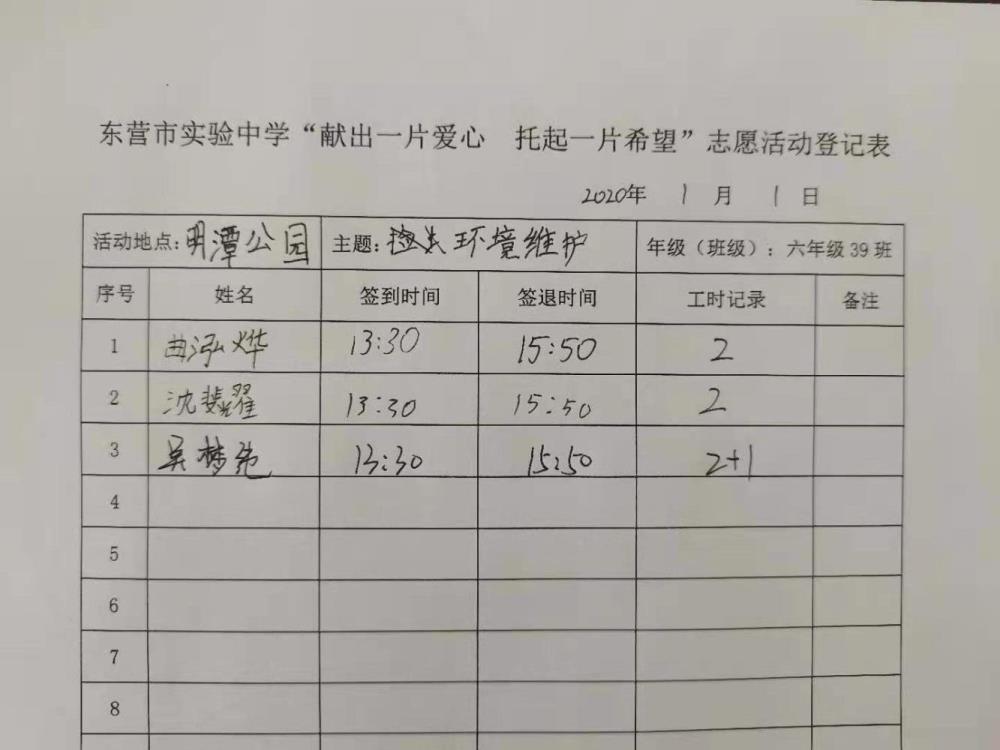 东营市实验中学“献出一片爱心 托起一片希望”志愿活动登记表
2020年 1 月 1 日
活动地点:明潭公园 主题: 环境维护 年级（班级）：六年级39班
序号 姓名 签到时间 签退时间 工时记录 备注
1 曲泓烨 13:30 15:50 2
2 沈耀 13:30 15:50 2
3 吴梦 13:30 15:50 2+1
4
5
6
7
8